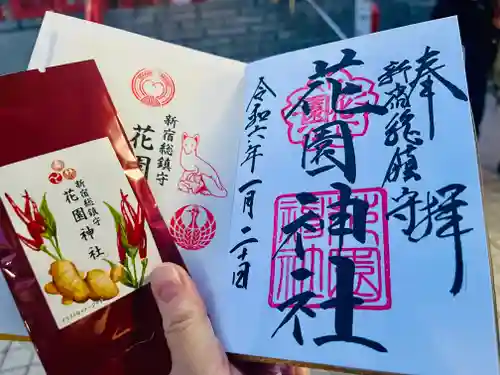 奉拝
新宿総鎮守
花園神社
令和六年一月二十四日
新宿総鎮守
花園
新宿総鎮守
花園神社